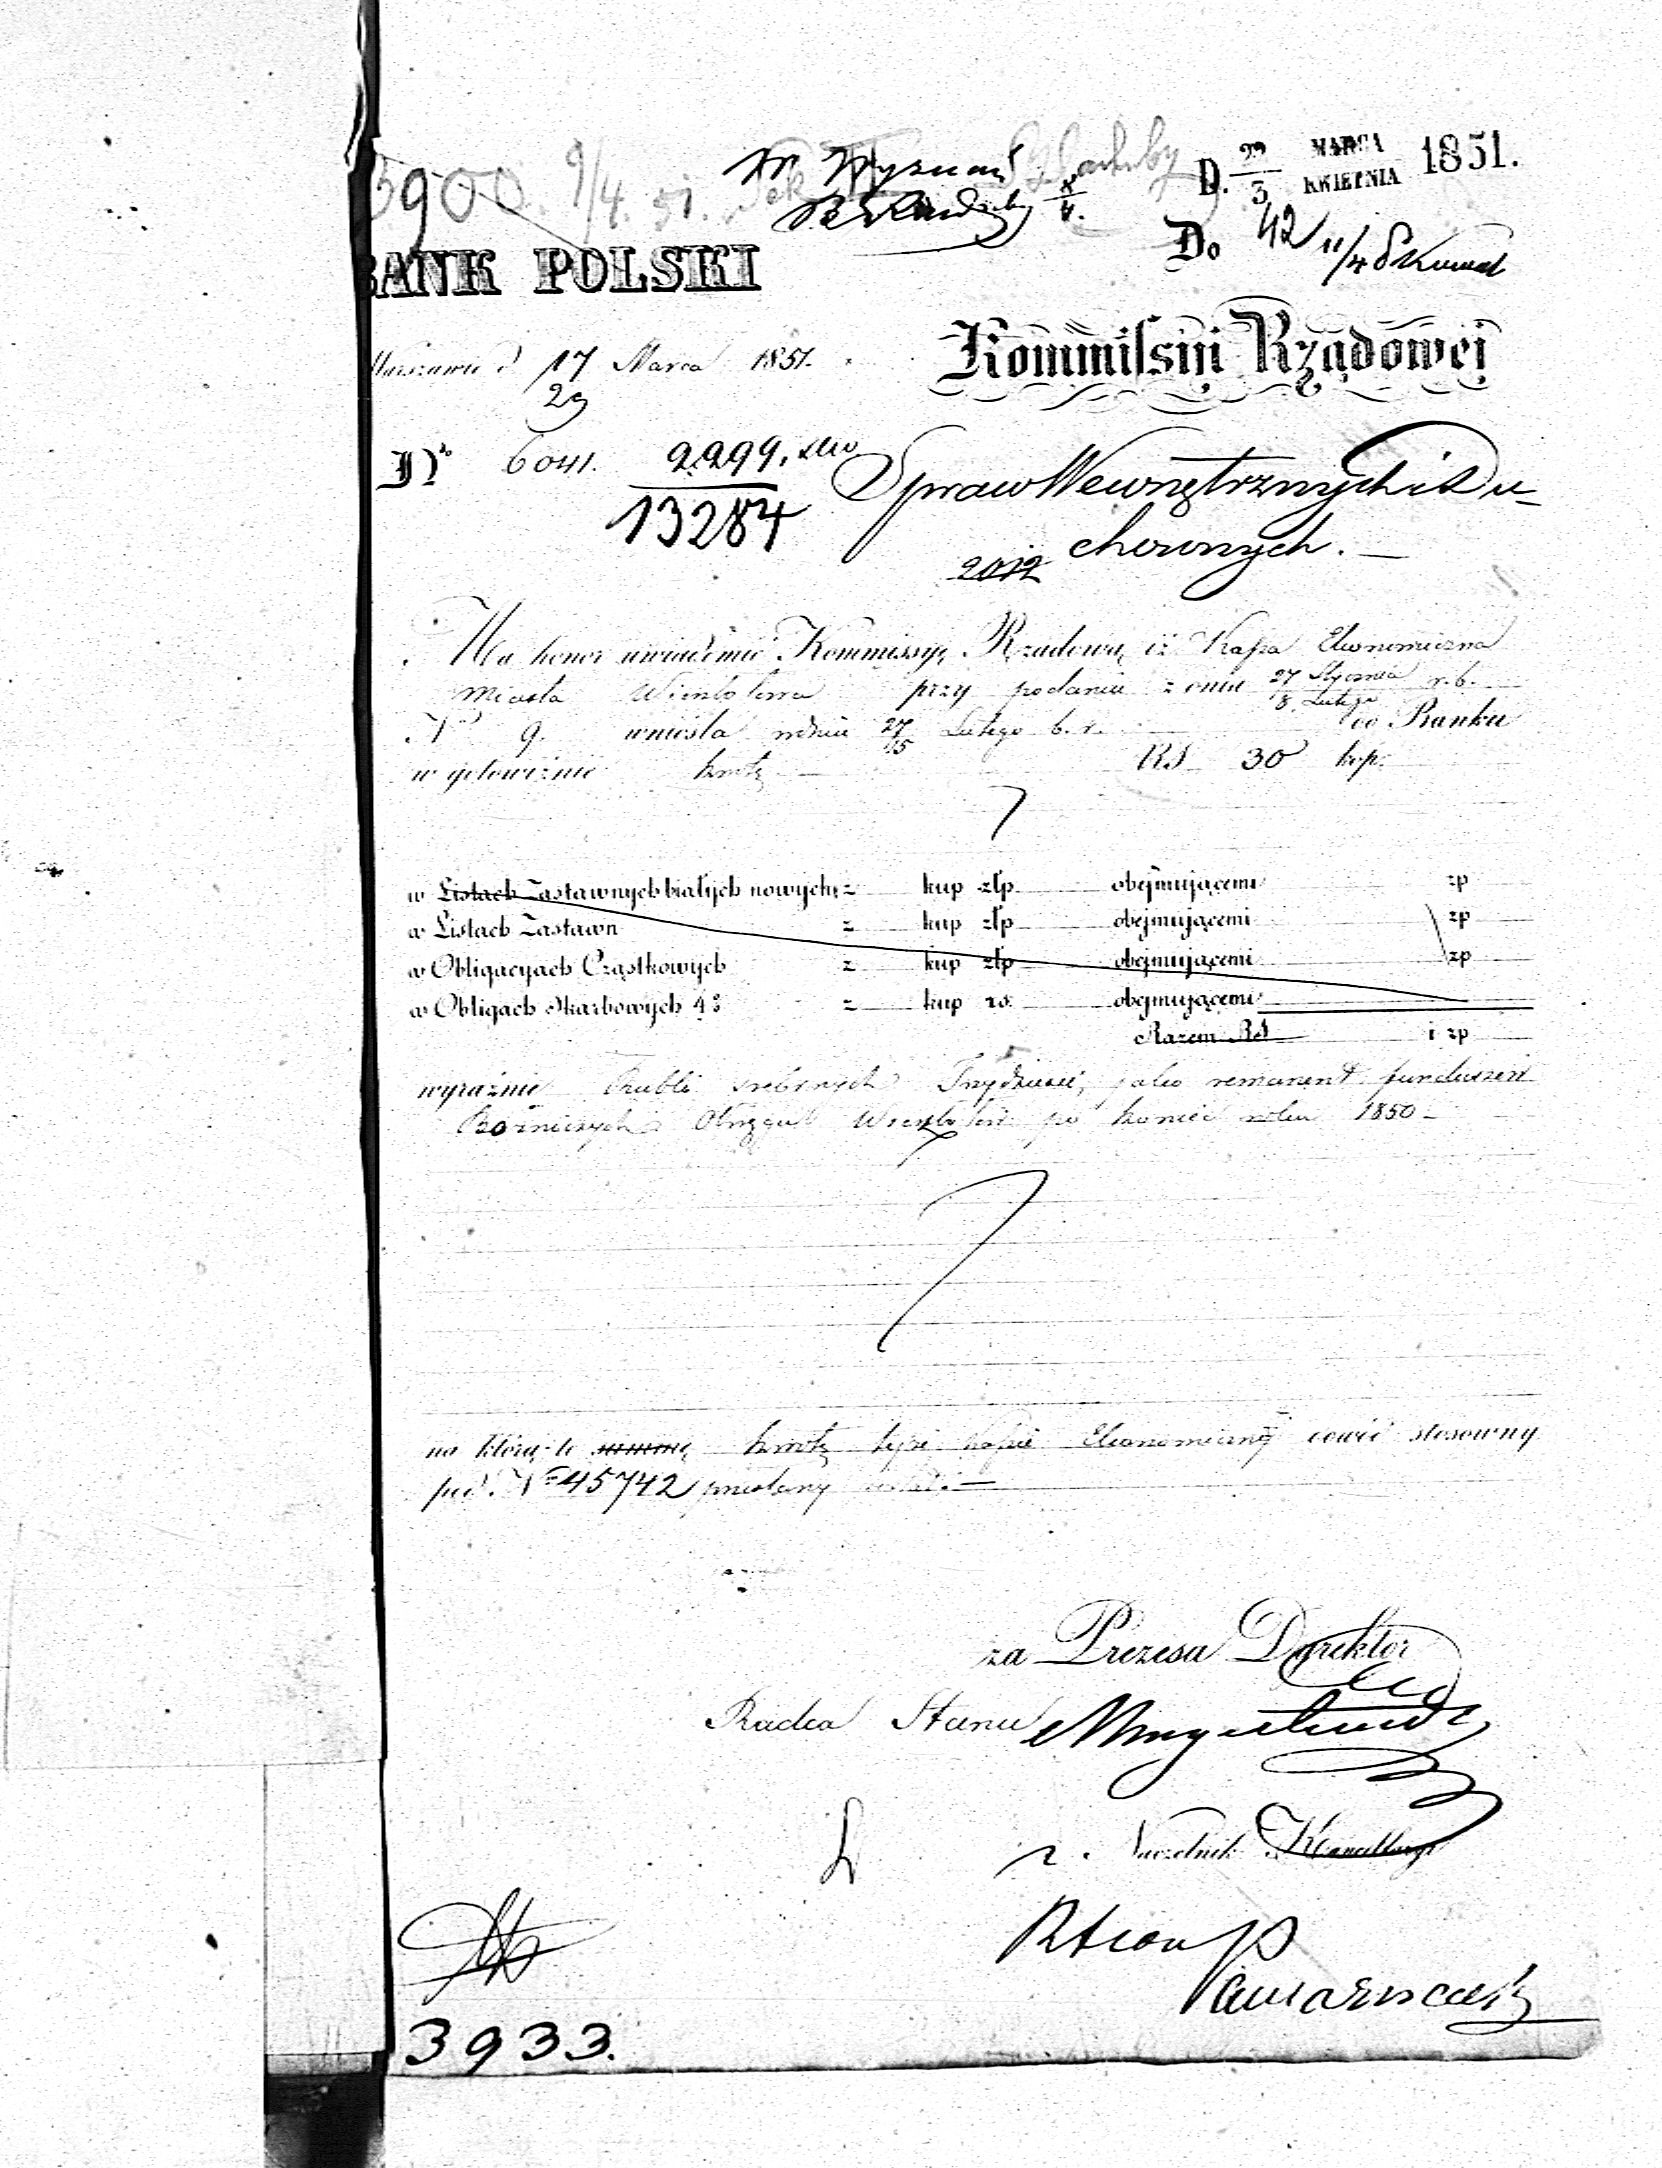 5900. 9/4. 51.
D. 22/3 MARCA KWIETNIA 1851.
Do 42 11/4
BANK POLSKI
Kommissyi Rządowej
Warszawie d 17/29 Marca 1851.
No 6041. 2299.
13284
Spraw Wewnętrznych i Du-
chownych. —
2012
Ma honor uwiadomić Kommissyę Rządową iż Kassa Ekonomiczna
Miasta przy podaniu z dnia 27 Stycznia / 8 Lutego r. b.
No 9. wniosła w dniu Lutego b. r. do Banku
w gotowiźnie kwotę RS 30 kop.
w Listach Zastawnych białych nowych z kup złp obejmującemi zp
w Listach Zastawn z kup złp obejmującemi zp
w Obligacyach Cząstkowych z kup złp obejmującemi zp
w Obligach Skarbowych 4% z kup rs. obejmującemi
Razem RS i zp
wyraźnie Rubli srebrnych Trzydzieści, jako remanent funduszów
Bożniczych Okręgu po koniec roku 1850 —
na którą to summę kwotę tejże kassie Ekonomicznej dowód stosowny
pod No 45742 przesłany został. —
za Prezesa Dyrektor
Radca Stanu
z. Naczelnik Kancellaryi
3933.